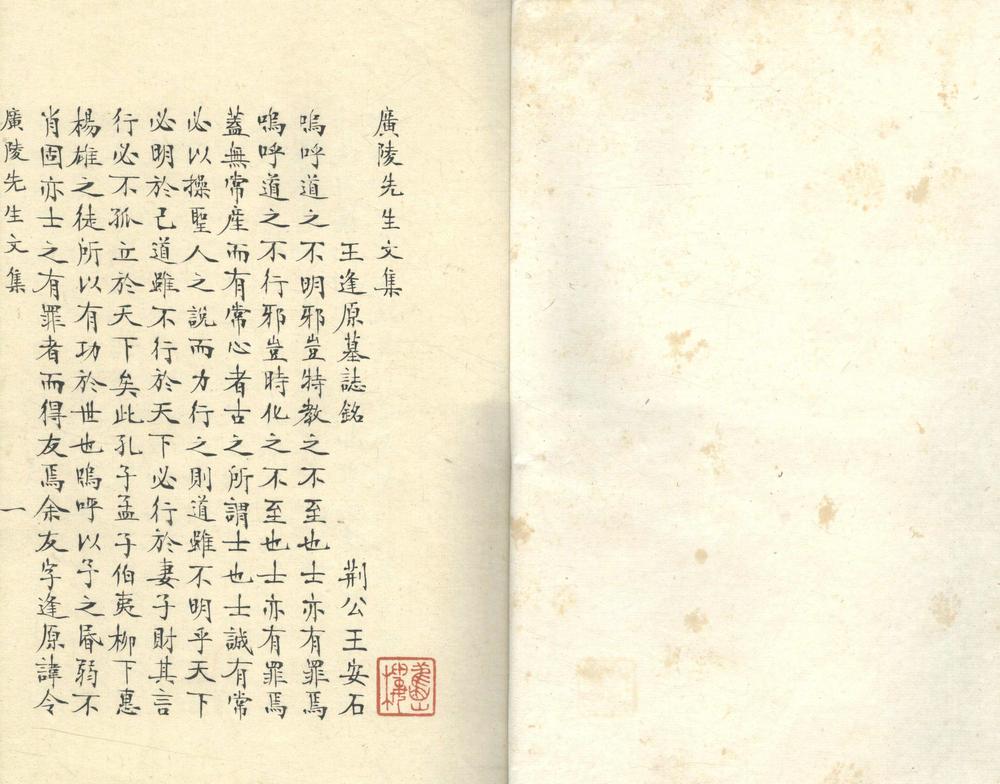 廣陵先生文集
王逢原墓誌銘 荆公王安石
嗚呼道之不明邪豈特教之不至也士亦有罪焉
嗚呼道之不行邪豈時化之不至也士亦有罪焉
蓋無常產而有常心者古之所謂士也士誠有常
必以操聖人之說而力行之則道雖不明乎天下
必明於己道雖不行於天下必行於妻子財其言
行必不孤立於天下矣此孔子孟子伯夷柳下惠
楊雄之徒所以有功於世也嗚呼以予之昬弱不
肖固亦士之有罪者而得友焉余友字逢原諱令
廣陵先生文集 一